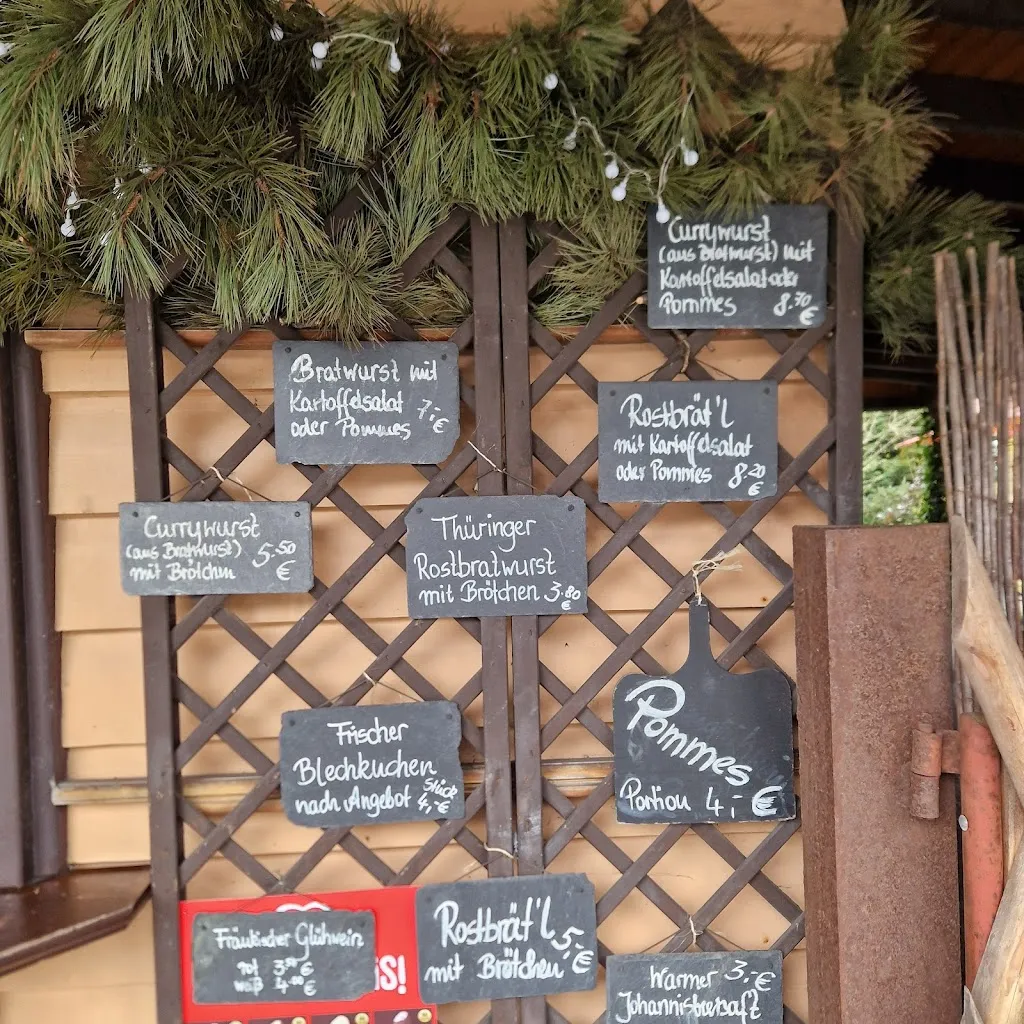 Currywurst
(aus Bratwurst) mit
Kartoffelsalat oder
Pommes 8.70 €
Bratwurst mit
Kartoffelsalat 7,- €
oder Pommes
Rostbrät'l
mit Kartoffelsalat
oder Pommes 8.20 €
Currywurst
(aus Bratwurst) 5.50 €
mit Brötchen
Thüringer
Rostbratwurst
mit Brötchen 3.80 €
Frischer
Blechkuchen
nach Angebot Stück 4,- €
Pommes
Portion 4,- €
Fränkischer Glühwein
rot €
weiß 4.00 €
is!
Rostbrät'l 5,- €
mit Brötchen
Warmer 3,- €
Johannisbeersaft